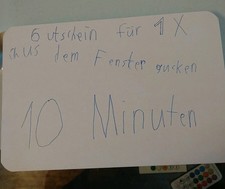 Gutschein für 1 X
aus dem Fenster gucken
10 Minuten